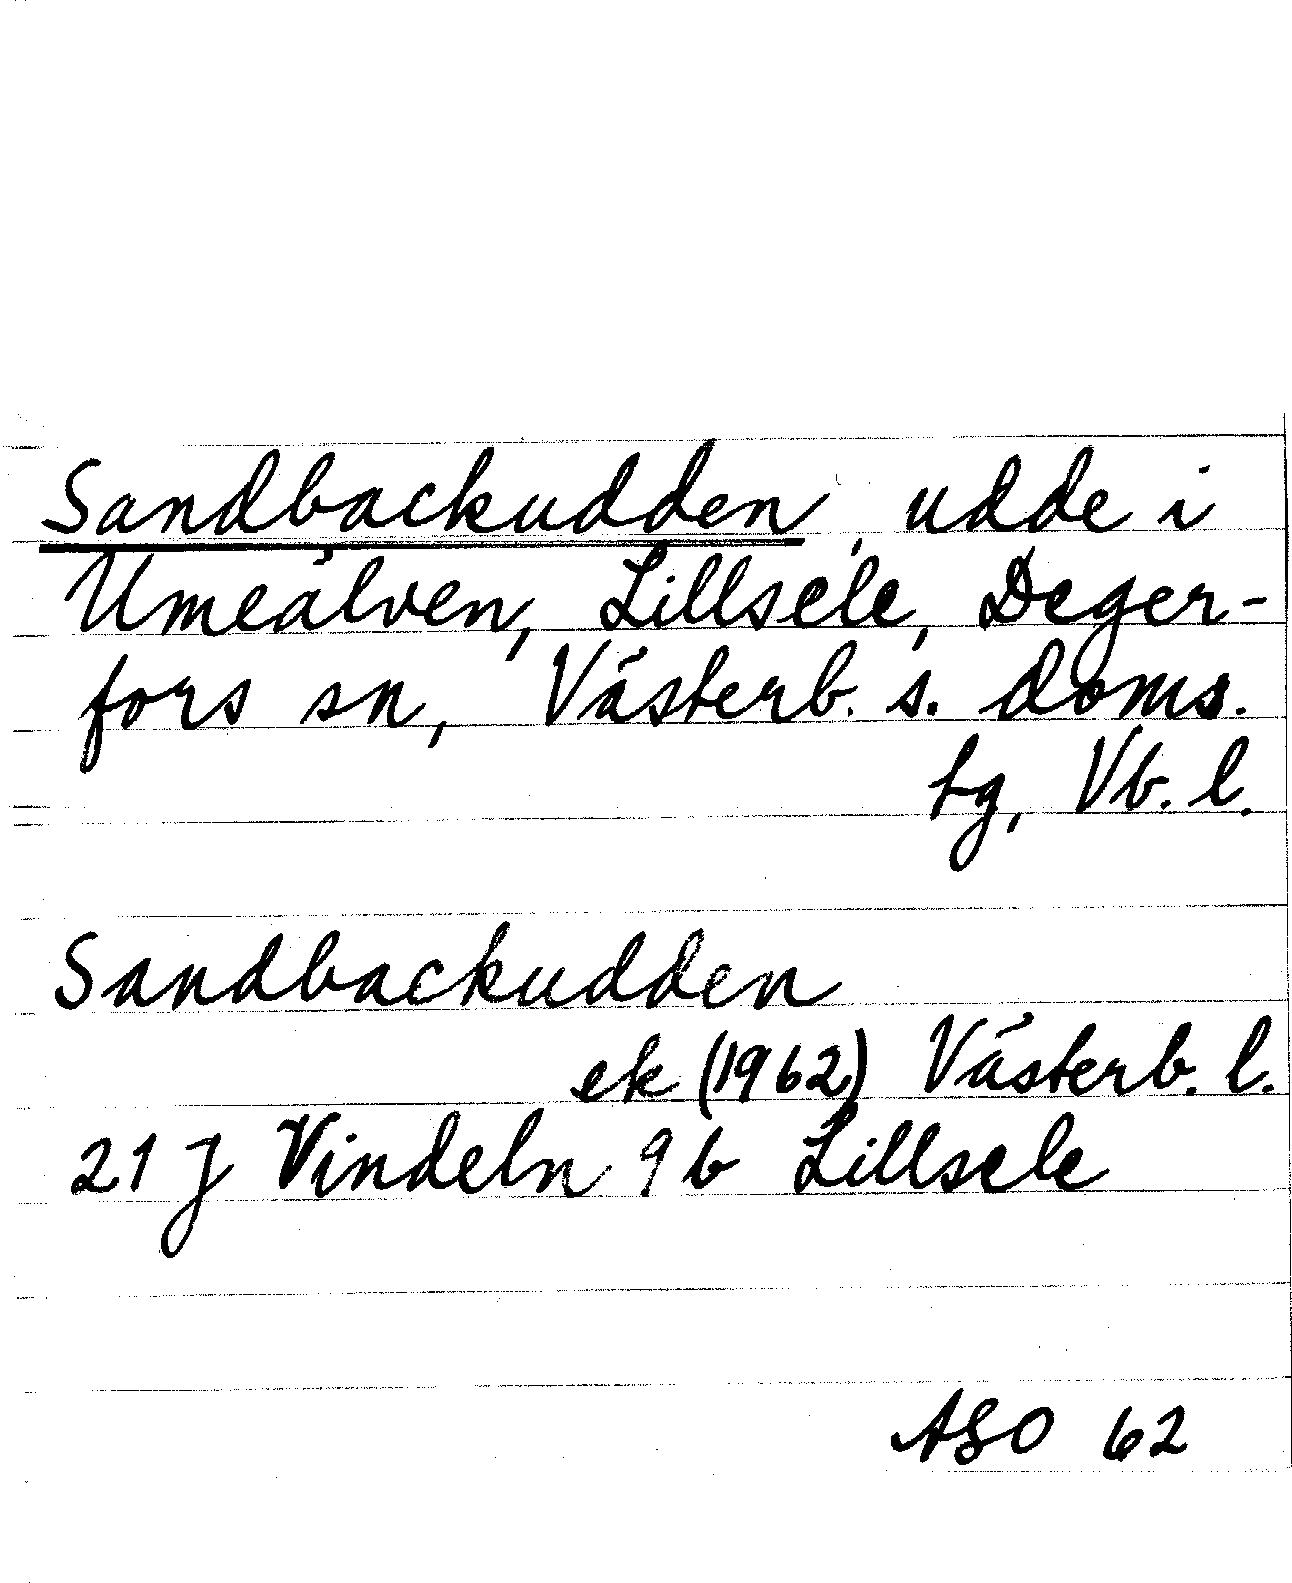 Sandbackudden, udde i
Umeälven, Lillsele, Deger-
fors sn, Västerb. s. doms.
tg, Vb. l.
Sandbackudden
ek (1962) Västerb. l.
21 J Vindeln 9 b Lillsele
ASO 62